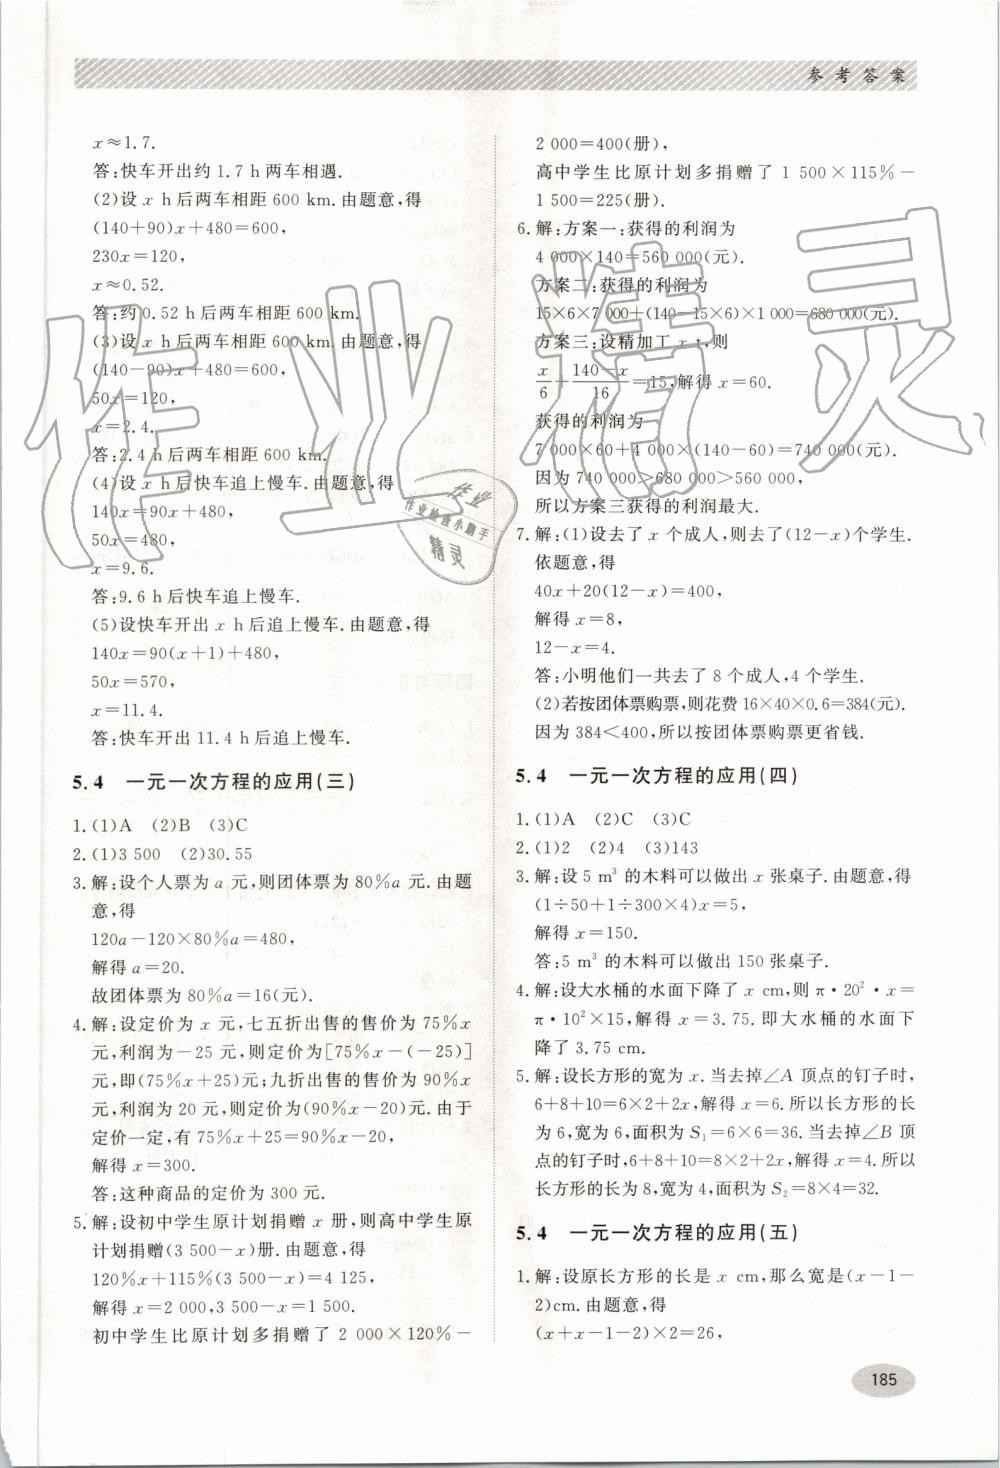 参考答案
x≈1.7.
答:快车开出约1.7 h两车相遇.
(2)设 x h后两车相距600 km.由题意,得
(140+90)x+480=600,
230x=120,
x≈0.52.
答:约0.52 h后两车相距600 km.
(3)设 x h后两车相距600 km.由题意,得
(140-90)x+480=600,
50x=120,
x=2.4.
答:2.4 h后两车相距600 km.
(4)设 x h后快车追上慢车.由题意,得
140x=90x+480,
50x=480,
x=9.6.
答:9.6 h后快车追上慢车.
(5)设快车开出 x h后追上慢车.由题意,得
140x=90(x+1)+480,
50x=570,
x=11.4.
答:快车开出11.4 h后追上慢车.
5.4 一元一次方程的应用(三)
1.(1)A (2)B (3)C
2.(1)3 500 (2)30.55
3.解:设个人票为a元,则团体票为80%a元.由题
意,得
120a-120×80%a=480,
解得a=20.
故团体票为80%a=16(元).
4.解:设定价为 x 元,七五折出售的售价为75%x
元,利润为-25元,则定价为[75%x-(-25)]
元,即(75%x+25)元;九折出售的售价为90%x
元,利润为20元,则定价为(90%x-20)元.由于
定价一定,有75%x+25=90%x-20,
解得x=300.
答:这种商品的定价为300元.
5.解:设初中学生原计划捐赠 x 册,则高中学生原
计划捐赠(3 500-x)册.由题意,得
120%x+115%(3 500-x)=4 125,
解得x=2 000,3 500-x=1 500.
初中学生比原计划多捐赠了 2 000×120%-
2 000=400(册),
高中学生比原计划多捐赠了 1 500×115%-
1 500=225(册).
6.解:方案一:获得的利润为
4 000×140=560 000(元).
方案二:获得的利润为
15×6×7 000+(140-15×6)×1 000=680 000(元).
方案三:设精加工 x t,则
x/6+(140-x)/16=15,解得x=60.
获得的利润为
7 000×60+4 000×(140-60)=740 000(元).
因为740 000>680 000>560 000,
所以方案三获得的利润最大.
7.解:(1)设去了 x 个成人,则去了(12-x)个学生.
依题意,得
40x+20(12-x)=400,
解得x=8,
12-x=4.
答:小明他们一共去了8个成人,4个学生.
(2)若按团体票购票,则花费16×40×0.6=384(元).
因为384<400,所以按团体票购票更省钱.
5.4 一元一次方程的应用(四)
1.(1)A (2)C (3)C
2.(1)2 (2)4 (3)143
3.解:设5 m³的木料可以做出 x 张桌子.由题意,得
(1÷50+1÷300×4)x=5,
解得x=150.
答:5 m³的木料可以做出150张桌子.
4.解:设大水桶的水面下降了 x cm,则π·20²·x=
π·10²×15,解得x=3.75.即大水桶的水面下
降了3.75 cm.
5.解:设长方形的宽为x.当去掉∠A顶点的钉子时,
6+8+10=6×2+2x,解得x=6.所以长方形的长
为6,宽为6,面积为S₁=6×6=36.当去掉∠B顶
点的钉子时,6+8+10=8×2+2x,解得x=4.所以
长方形的长为8,宽为4,面积为S₂=8×4=32.
5.4 一元一次方程的应用(五)
1.解:设原长方形的长是 x cm,那么宽是(x-1-
2)cm.由题意,得
(x+x-1-2)×2=26,
185
作业精灵
作业
作业检查小助手
精灵